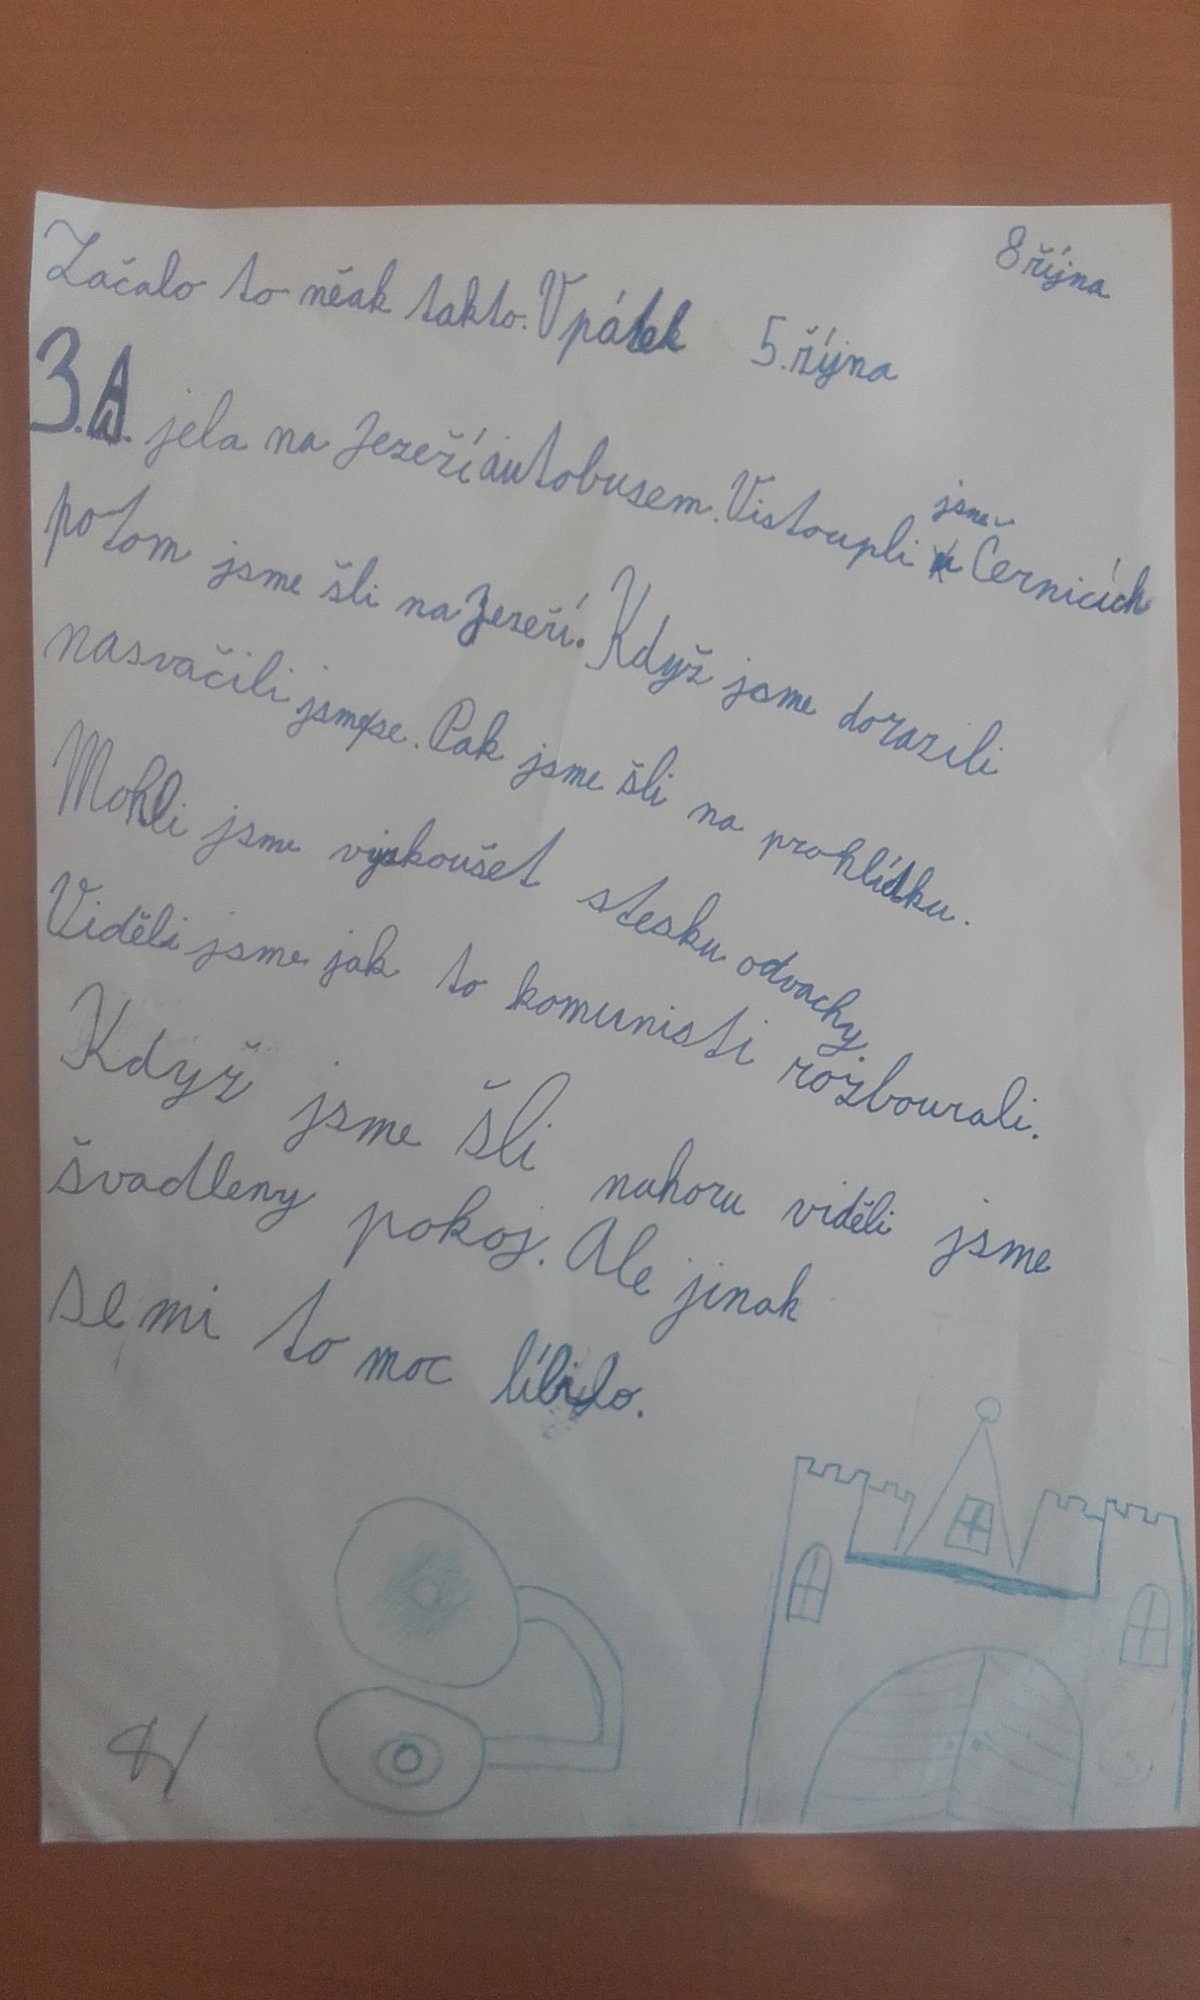 8 října
Začalo to něak takto. V pátek 5. října
3.A. jela na Jezeří autobusem. Vistoupli jsme v Černicích
potom jsme šli na Jezeří. Když jsme dorazili
nasvačili jsme se. Pak jsme šli na prohlídku.
Mohli jsme vyskoušet stesku odvachy.
Viděli jsme jak to komunisti rozbourali.
Když jsme šli nahoru viděli jsme
švadleny pokoj. Ale jinak
se mi to moc líbilo.